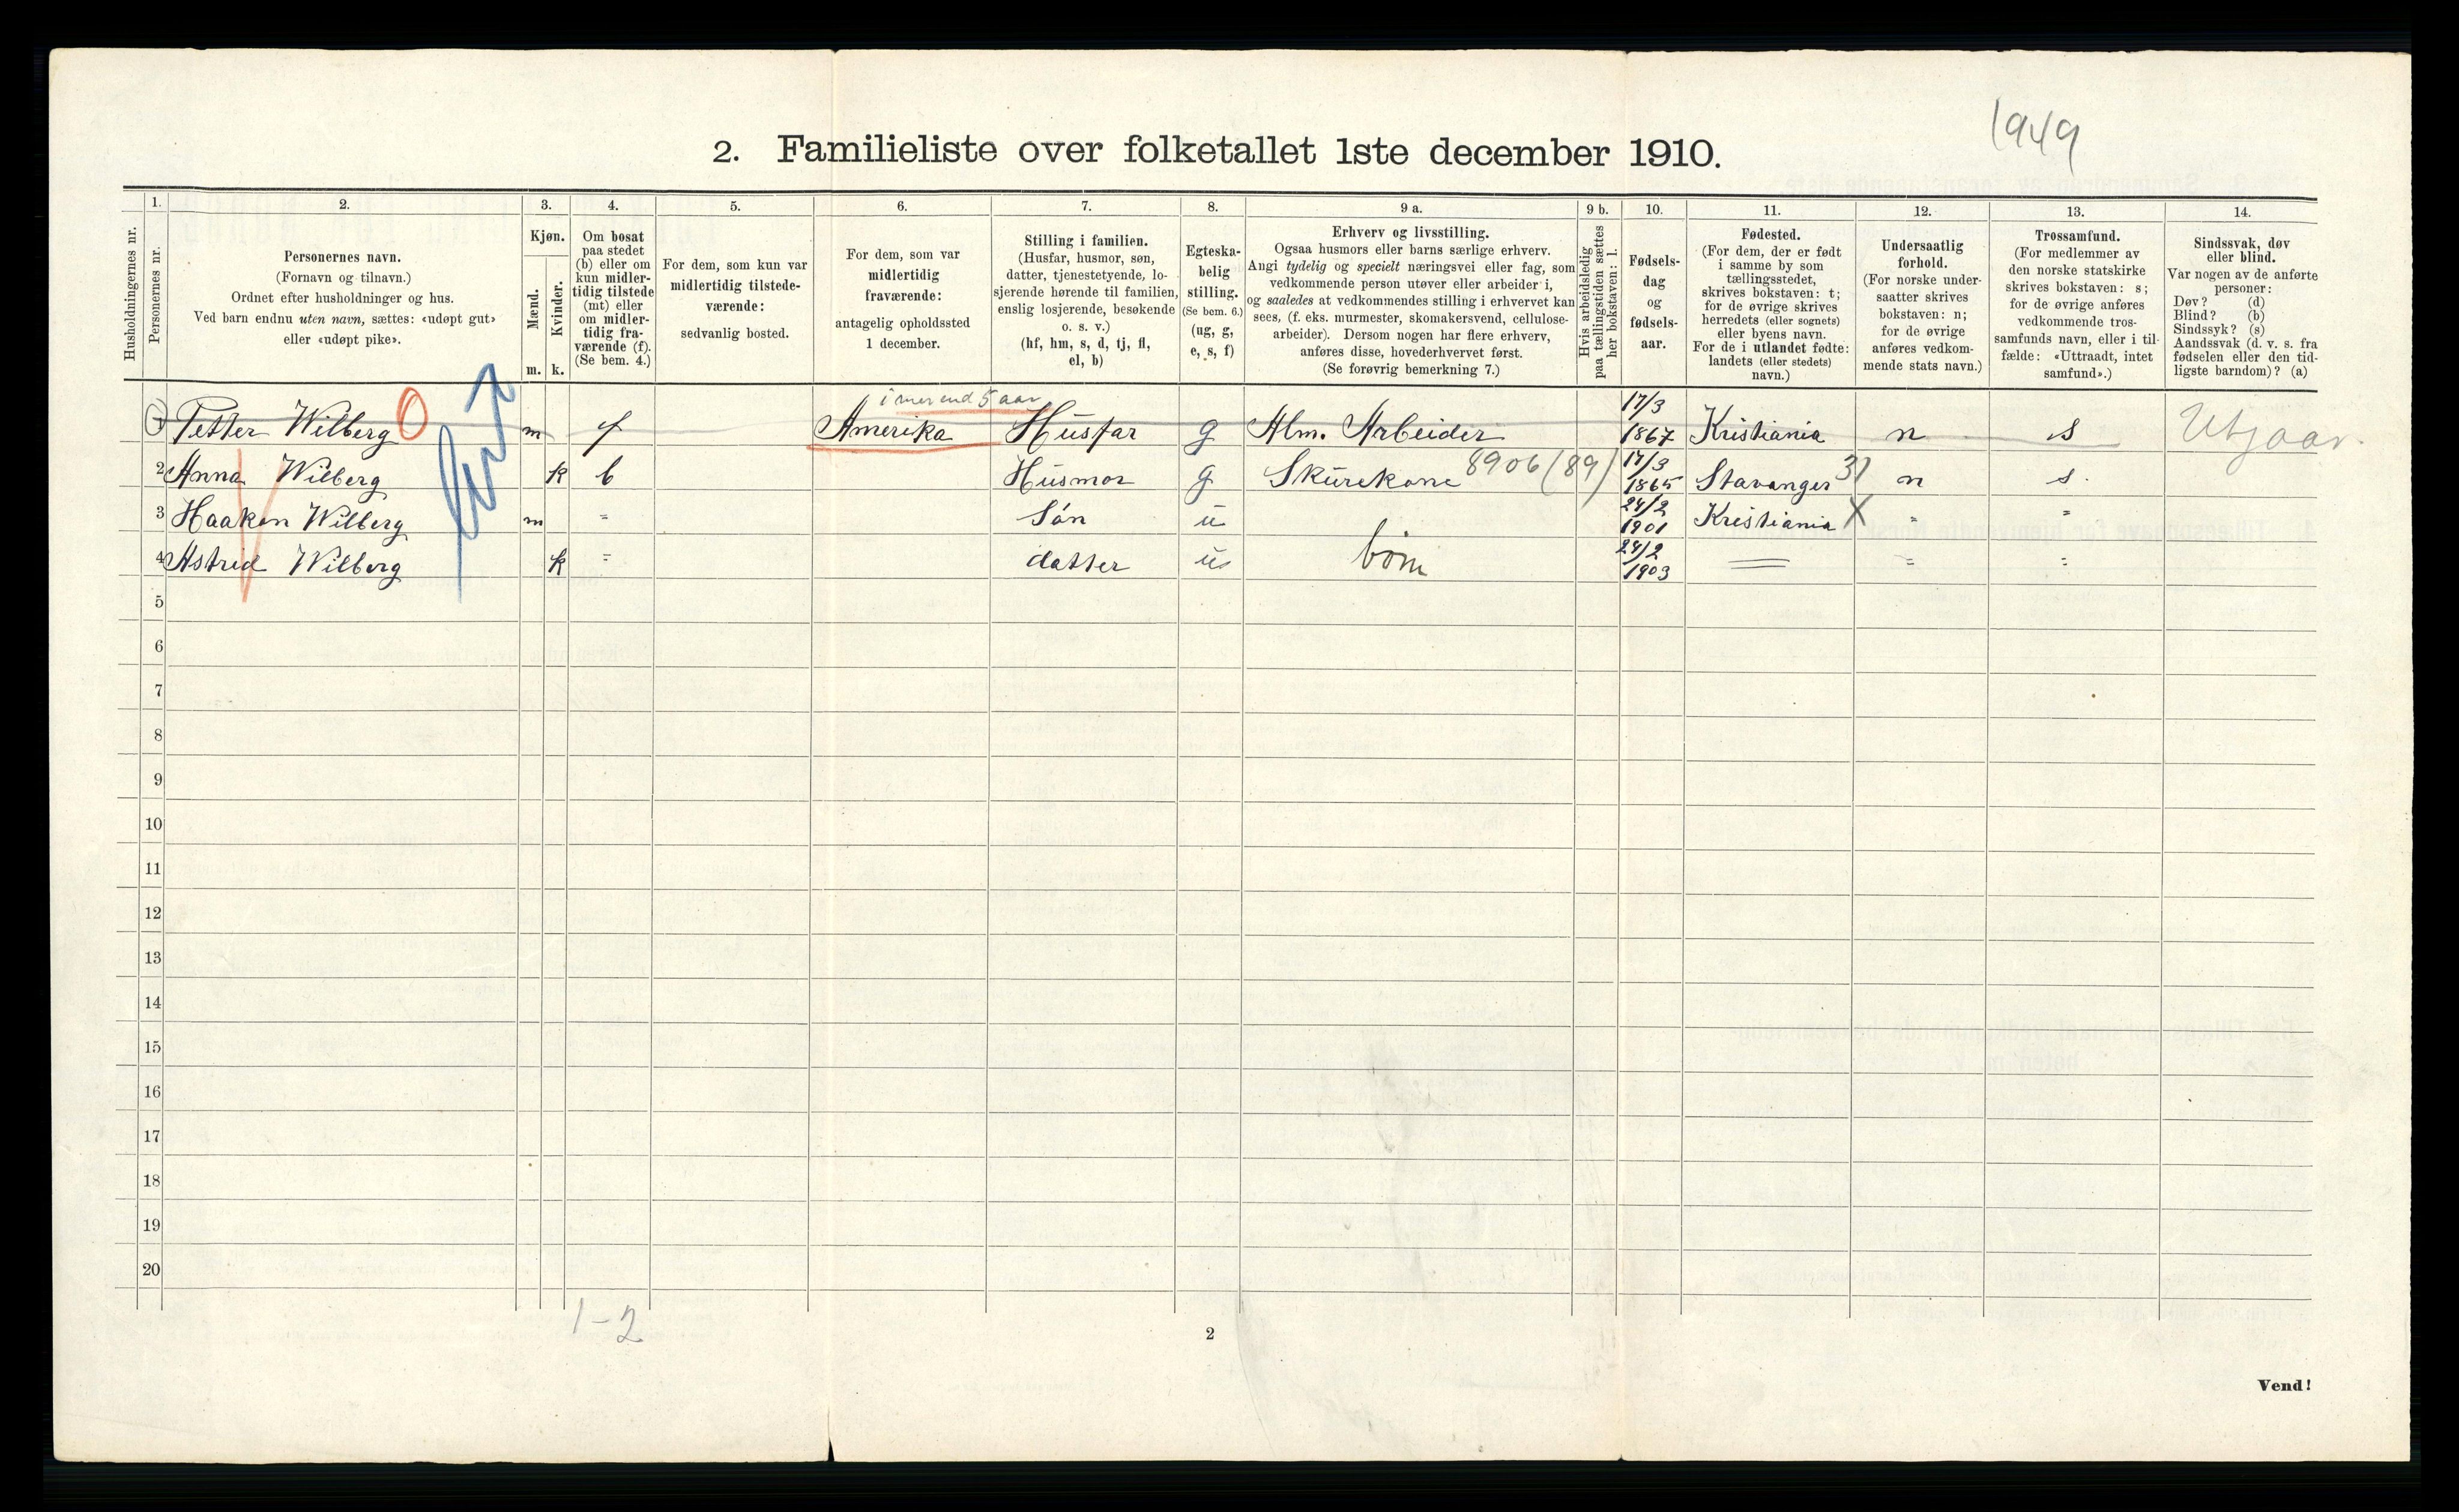 1949
2. Familieliste over folketallet 1ste december 1910.
Husholdningernes nr.
1.
Personernes nr.
2.
Personernes navn.
(Fornavn og tilnavn.)
Ordnet efter husholdninger og hus.
Ved barn endnu uten navn, sættes: «udøpt gut»
eller «udøpt pike».
3.
Kjøn.
Mænd.
Kvinder.
m. k.
4.
Om bosat
paa stedet
(b) eller om
kun midler-
tidig tilstede
(mt) eller
om midler-
tidig fra-
værende (f).
(Se bem. 4.)
5.
For dem, som kun var
midlertidig tilstede-
værende:
sedvanlig bosted.
6.
For dem, som var
midlertidig
fraværende:
antagelig opholdssted
1 december.
7.
Stilling i familien.
(Husfar, husmor, søn,
datter, tjenestetyende, lo-
sjerende hørende til familien,
enslig losjerende, besøkende
o. s. v.)
(hf, hm, s, d, tj, fl,
el, b)
8.
Egteska-
belig
stilling.
(Se bem. 6.)
(ug, g,
e, s, f)
9 a.
Erhverv og livsstilling.
Ogsaa husmors eller barns særlige erhverv.
Angi tydelig og specielt næringsvei eller fag, som
vedkommende person utøver eller arbeider i,
og saaledes at vedkommendes stilling i erhvervet kan
sees, (f. eks. murmester, skomakersvend, cellulose-
arbeider). Dersom nogen har flere erhverv,
anføres disse, hovederhvervet først.
(Se forøvrig bemerkning 7.)
9 b.
Hvis arbeidsledig
paa tællingstiden sættes
her bokstaven: l.
10.
Fødsels-
dag
og
fødsels-
aar.
11.
Fødested.
(For dem, der er født
i samme by som
tællingsstedet,
skrives bokstaven: t;
for de øvrige skrives
herredets (eller sognets)
eller byens navn.
For de i utlandet fødte:
landets (eller stedets)
navn.)
12.
Undersaatlig
forhold.
(For norske under-
saatter skrives
bokstaven: n;
for de øvrige
anføres vedkom-
mende stats navn.)
13.
Trossamfund.
(For medlemmer av
den norske statskirke
skrives bokstaven: s;
for de øvrige anføres
vedkommende tros-
samfunds navn, eller i til-
fælde: «Uttraadt, intet
samfund».)
14.
Sindssvak, døv
eller blind.
Var nogen av de anførte
personer:
Døv? (d)
Blind? (b)
Sindssyk? (s)
Aandssvak (d. v. s. fra
fødselen eller den tid-
ligste barndom)? (a)
i mer end 5 aar
1 Petter Wilberg m f Amerika Husfar g Alm. Arbeider 17/3 1867 Kristiania n s Utgaar.
2 Anna Wilberg k b Husmor g Skurekone 8906 (89) 17/3 1865 Stavanger 31 n s.
3 Haakon Wilberg m " Sön u 24/2 1901 Kristiania X " "
4 Astrid Wilberg k " datter u börn 24/2 1903 " " "
5
6
7
8
9
10
11
12
13
14
15
16
17
18
19
20
1-2
2
Vend!